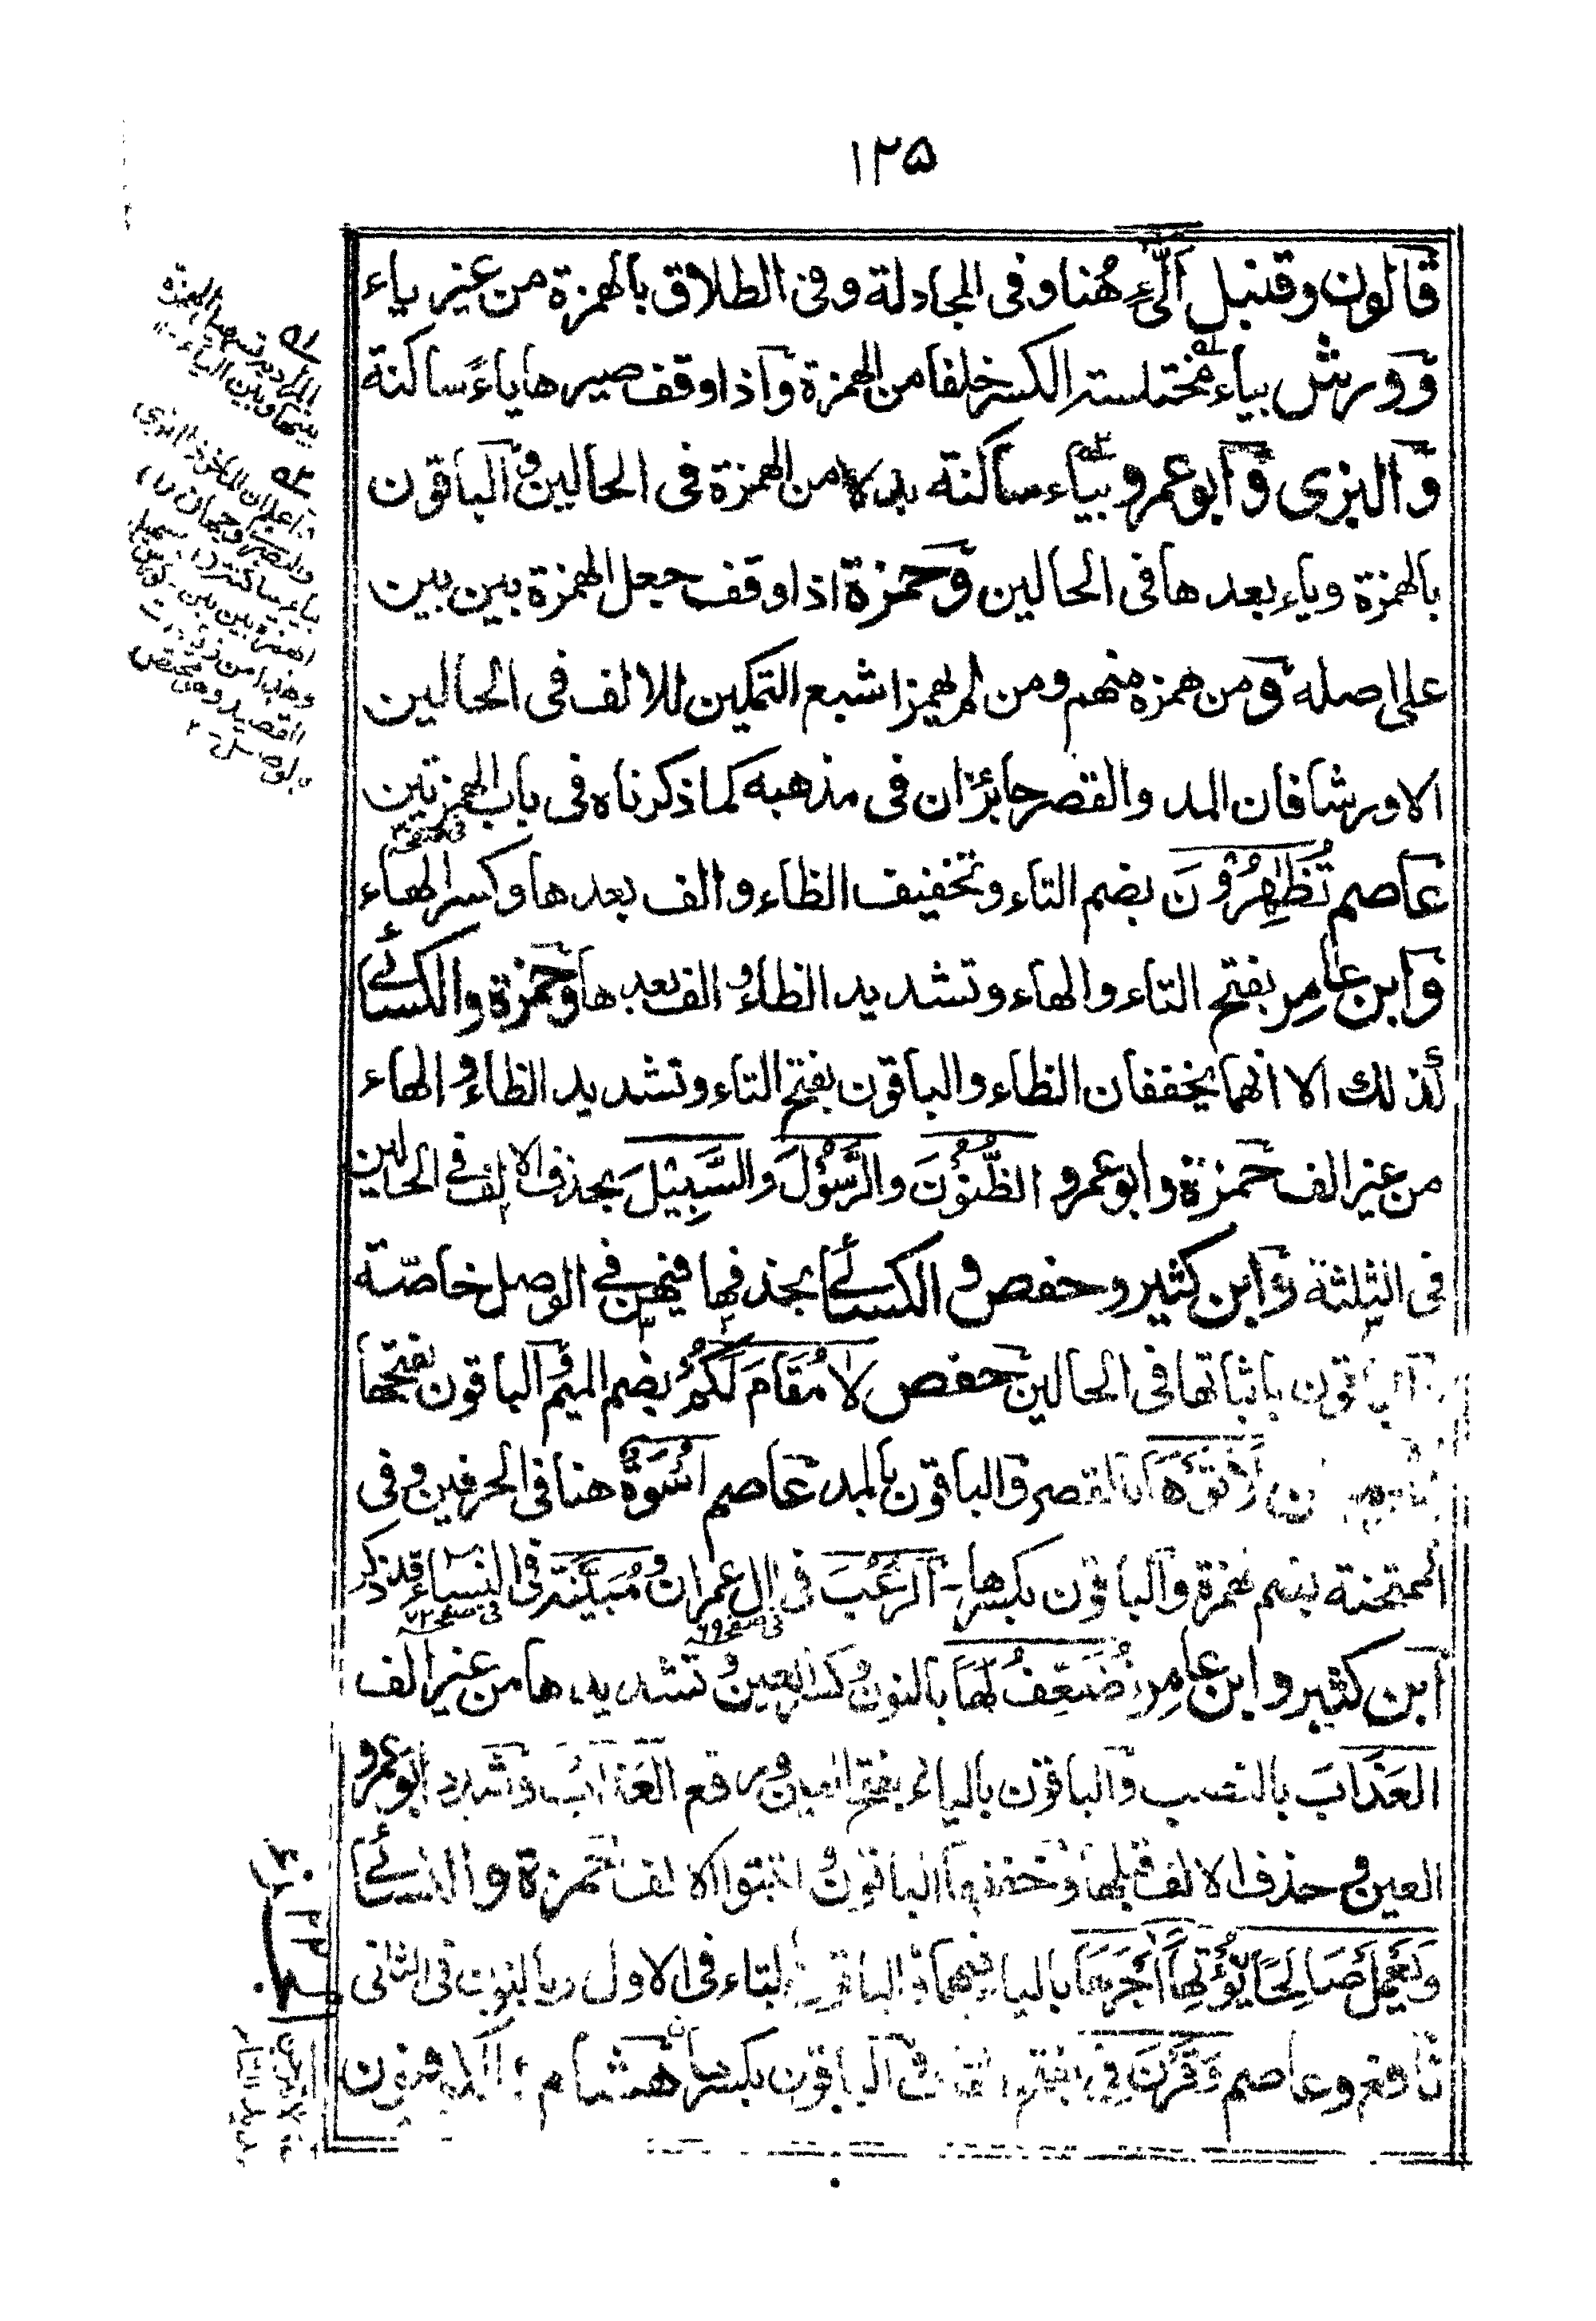 ١٢٥
قالون وقنبل الّٰىِٕ هُنا وفى المجادلة وفى الطلاق بالهمزة من غير ياء
وورش بياء مختلسة الكسر خلفا من الهمزة واذا وقف صيرها ياءً ساكنة
والبزى وابوعمرو بياء ساكنة بدلا من الهمزة فى الحالين والباقون
بالهمزة وياءٍ بعدها فى الحالين وحمزة اذا وقف جعل الهمزة بين بين
على اصله ومن همزه منهم ومن لم يهمز اشبع التمكين للالف فى الحالين
الا ورشا فان المد والقصر جائزان فى مذهبه كما ذكرناه فى باب الهمزتين
عاصم تُظٰهِرُوْنَ بضم التاء وتخفيف الظاء والف بعدها وكسر الهاء
وابن عامر بفتح التاء والهاء وتشديد الظاء والف بعدها وحمزة والكسائے
كذلك الا انهما يخففان الظاء والباقون بفتح التاء وتشديد الظاء والهاء
من غير الف حمزة وابو عمرو الظُّنُوْنَ والرَّسُوْلَ والسَّبِيْلَ بحذف الالف فے الحالين
فى الثلثة وابن كثير وحفص و الكسائے بحذفها فيهن فے الوصل خاصّة
الباقون باثباتها فى الحالين حفص لا مُقَامَ لَكُمْ بضم الميم والباقون بفتحها
لَاٰتَوْهَا بالقصر والباقون بالمد عاصم اُسْوَةٌ هنا فى الحرفين وفى
الممتحنة بضم الهمزة والباقون بكسرها۔ الرُّعْبَ فى اٰل عمران و مُبَيِّنَة فى النساء قد ذكر
فى صفحه ٦٩ فى صفحه ٧٢
ابن كثير وابن عامر نُضَعِّفُ لَهَا بالنون وكسر العين و تشديدها من غير الف
العَذَابَ بالنصب والباقون بالياء بفتح العين ورفع العَذَابُ وشدد ابو عمرو
العين وحذف الالف قبلها وخففها الباقون واثبتوا الالف حمزة والكسائے
وَيَعْمَلْ صَالِحًا يُؤْتِهَا اَجْرَهَا بالياء فيهما والباقون بالتاء فى الاول وبالنون فى الثانى
نافع وعاصم وَقَرْنَ فِى بفتح القاف والباقون بكسرها هشام والكوفيون